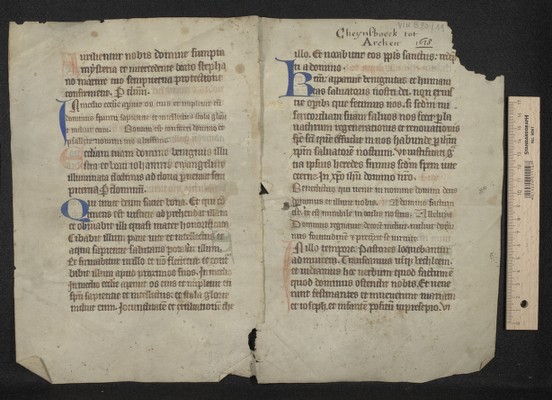 Cheynsboeck tot
Archen 1618
Auxilientur nobis domine sumpta
mysteria et intercedente beato stepha
no martire tuo sempiterna protectione
confirment. P
In medio ecclesie aperuit os eius et impleuit eum
dominus spiritu sapientie et intellectus stola glorie
induit eum. Bonum est confiteri domino et
psallere nomini tuo altissime.
Ecclesiam tuam domine benignus illu
stra et beati iohannis evangeliste
illuminata doctrinis ad dona perueniat sem
piterna. P dominum.
Qui timet deum faciet bona. Et qui con
tinens est iusticie apprehendet illam
et obuiabit illi quasi mater honorificata
Cibabit illum pane vite et intellectus et
aqua sapientie salutaris potabit illum.
Et firmabitur in illo et non flectetur et conti
nebit illum apud proximos suos. In medio
ecclesie aperiet os eius et implebit eum
spiritu sapientie et intellectus et stola glorie
induet eum. Iocunditatem et exultationem the
illo. Et vocabitur eos populus sanctus redemp
ti a domino.
Karissime apparuit benignitas et humani
tas saluatoris nostri dei. non ex operibus
iusticie que fecimus nos. sed secundum mi
sericordiam suam saluos nos fecit per la
uachrum regenerationis et renouationis
spiritus sancti quem effudit in nos habunde per ihesum
christum saluatorem nostrum. vt iustificati gra
tia ipsius heredes simus secundum spem vite
eterne. In christo ihesu domino nostro.
Benedictus qui venit in nomine domini deus
dominus et illuxit nobis. A domino factum
est et est mirabile in oculis nostris. Alleluya
Dominus regnauit decorem induit induit domi
nus fortitudinem et precinxit se virtute.
In illo tempore. Pastores loquebantur
ad inuicem. Transeamus usque bethleem
et videamus hoc verbum quod factum est
quod dominus ostendit nobis. Et vene
runt festinantes et inuenerunt mariam
et ioseph. et infantem positum in presepio. Vi